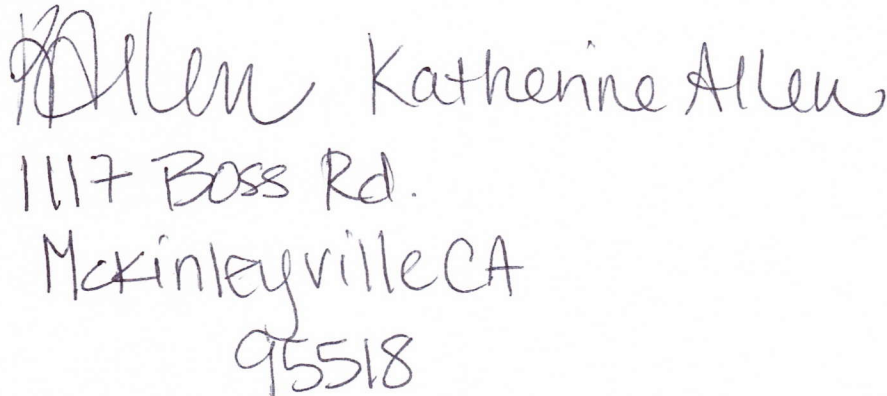 KAllen Katherine Allen
1117 Boss Rd.
Mckinleyville CA
95518